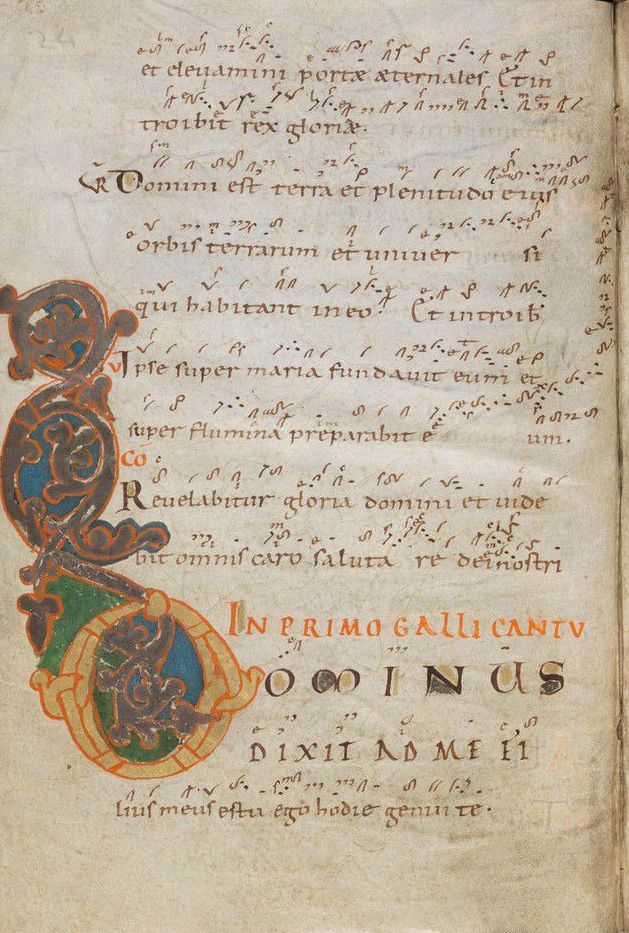 et eleuamini portæ æternales Et in
troibit rex gloriæ.
Domini est terra et plenitudo eius
orbis terrarum et uniuer si
qui habitant in eo. Et introib
V Ipse super maria fundauit eum et
super flumina preparabit e um.
CO
Reuelabitur gloria domini et uide
bit omnis caro saluta re dei nostri
IN PRIMO GALLI CANTV
DOMINUS
DIXIT AD ME FI
lius meus es tu ego hodie genui te.